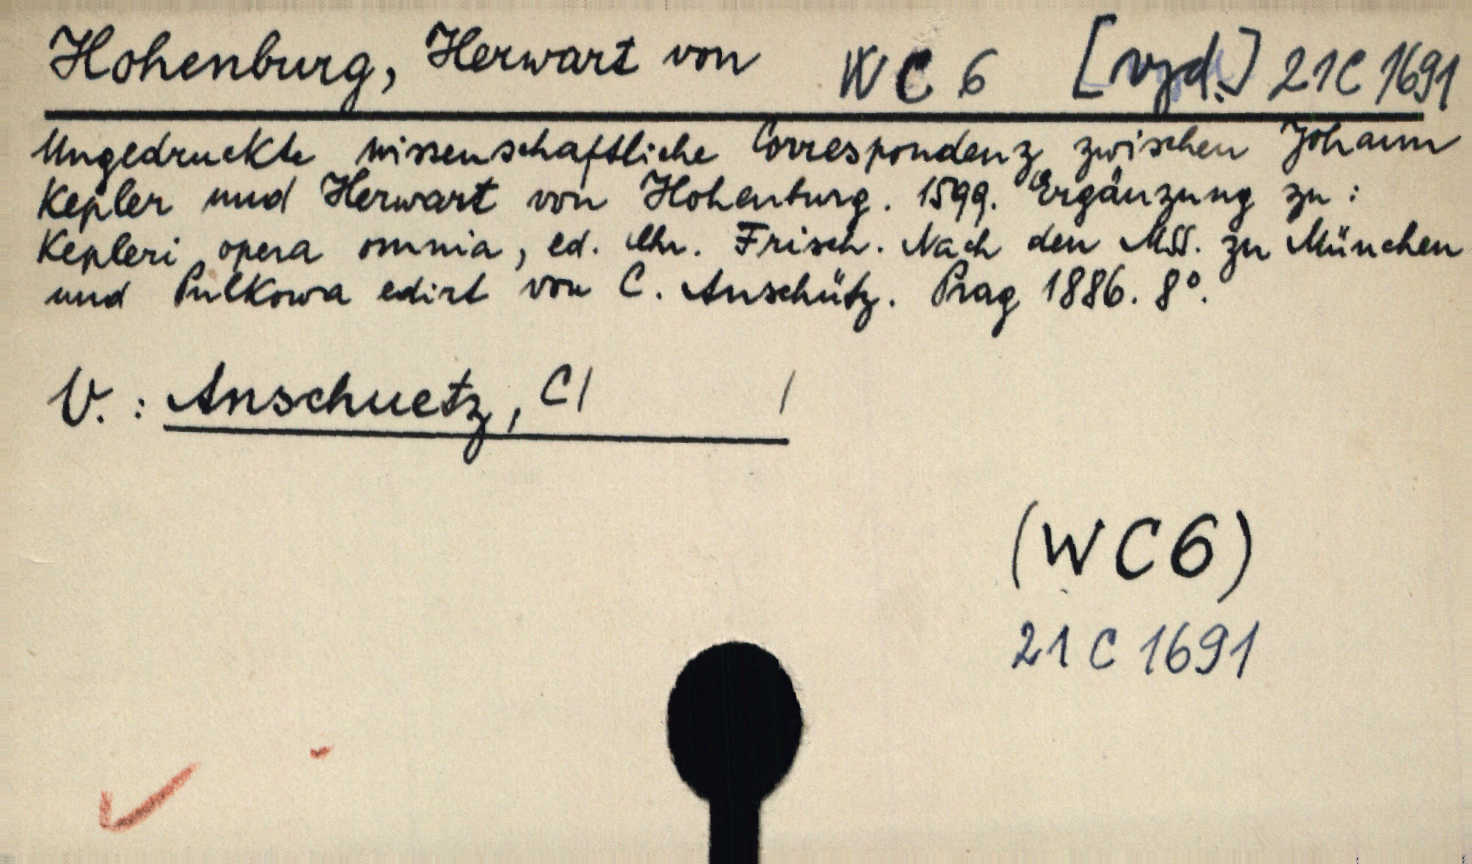 Hohenburg, Herwart von WC 6 [vyd.] 21C 1691
Ungedruckte wissenschaftliche Correspondenz zwischen Johann
Kepler und Herwart von Hohenburg. 1599. Ergänzung zu:
Kepleri opera omnia, ed. Chr. Frisch. Nach den Mss. zu München
und Pulkowa edirt von C. Anschütz. Prag 1886. 8°.
V.: Anschuetz, C/ /
(WC6)
21 C 1691